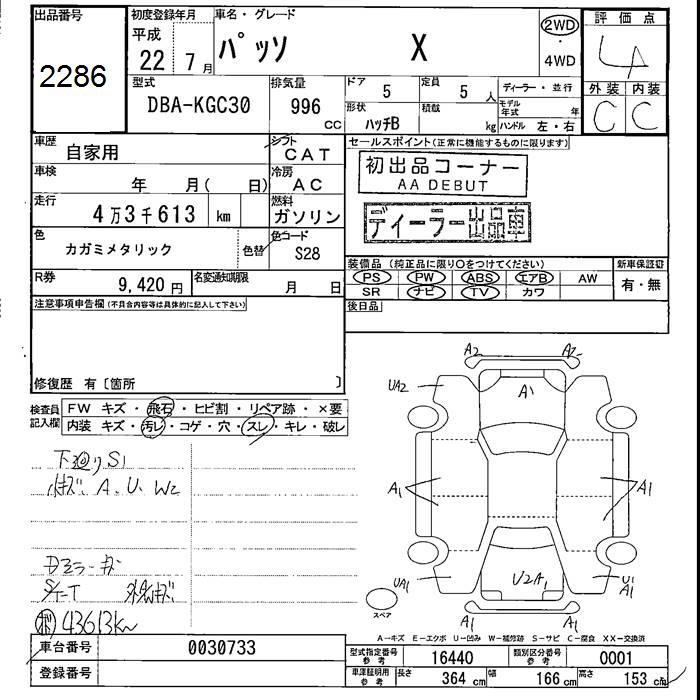 出品番号
2286
初度登録年月
平成
22 年 7 月
車名・グレード
パッソ X
2WD
・
4WD
評価点
4A
外装 内装
C C
型式
DBA-KGC30
排気量
996
CC
ドア
5
定員
5 人
形状
ハッチB
積載
kg
ディーラー・並行
モデル年式 年
ハンドル 左・右
車歴
自家用
シフト
CAT
車検
年 月( 日)
冷房
AC
走行
4万3千613 km
燃料
ガソリン
色
カガミメタリック
色替
色コード
S28
R券
9,420 円
名変通知期限
月 日
セールスポイント(正常に機能するものに限ります)
初出品コーナー
AA DEBUT
ディーラー出品車
装備品(純正品に限り○をつけてください)
新車保証書
PS PW ABS エアB AW
有・無
SR ナビ TV カワ
後日品
注意事項申告欄(不具合内容等は具体的に記入して下さい)
修復歴 有〔箇所 〕
検査員記入欄
FW キズ・飛石・ヒビ割・リペア跡・×要
内装 キズ・汚レ・コゲ・穴・スレ・キレ・破レ
下廻りS1
小キズ A、U、W2
Dミラーキズ
43613km
A2 A2
UA2
A1
A1 A1
UA1
U2A1
U1
A1
A1 A1
スペア
A-キズ E-エクボ U-凹み W-補修跡 S-サビ C-腐食 XX-交換済
車台番号
0030733
登録番号
型式指定番号
参考
16440
類別区分番号
参考
0001
車庫証明用
参考
長さ
364 cm
幅
166 cm
高さ
153 cm